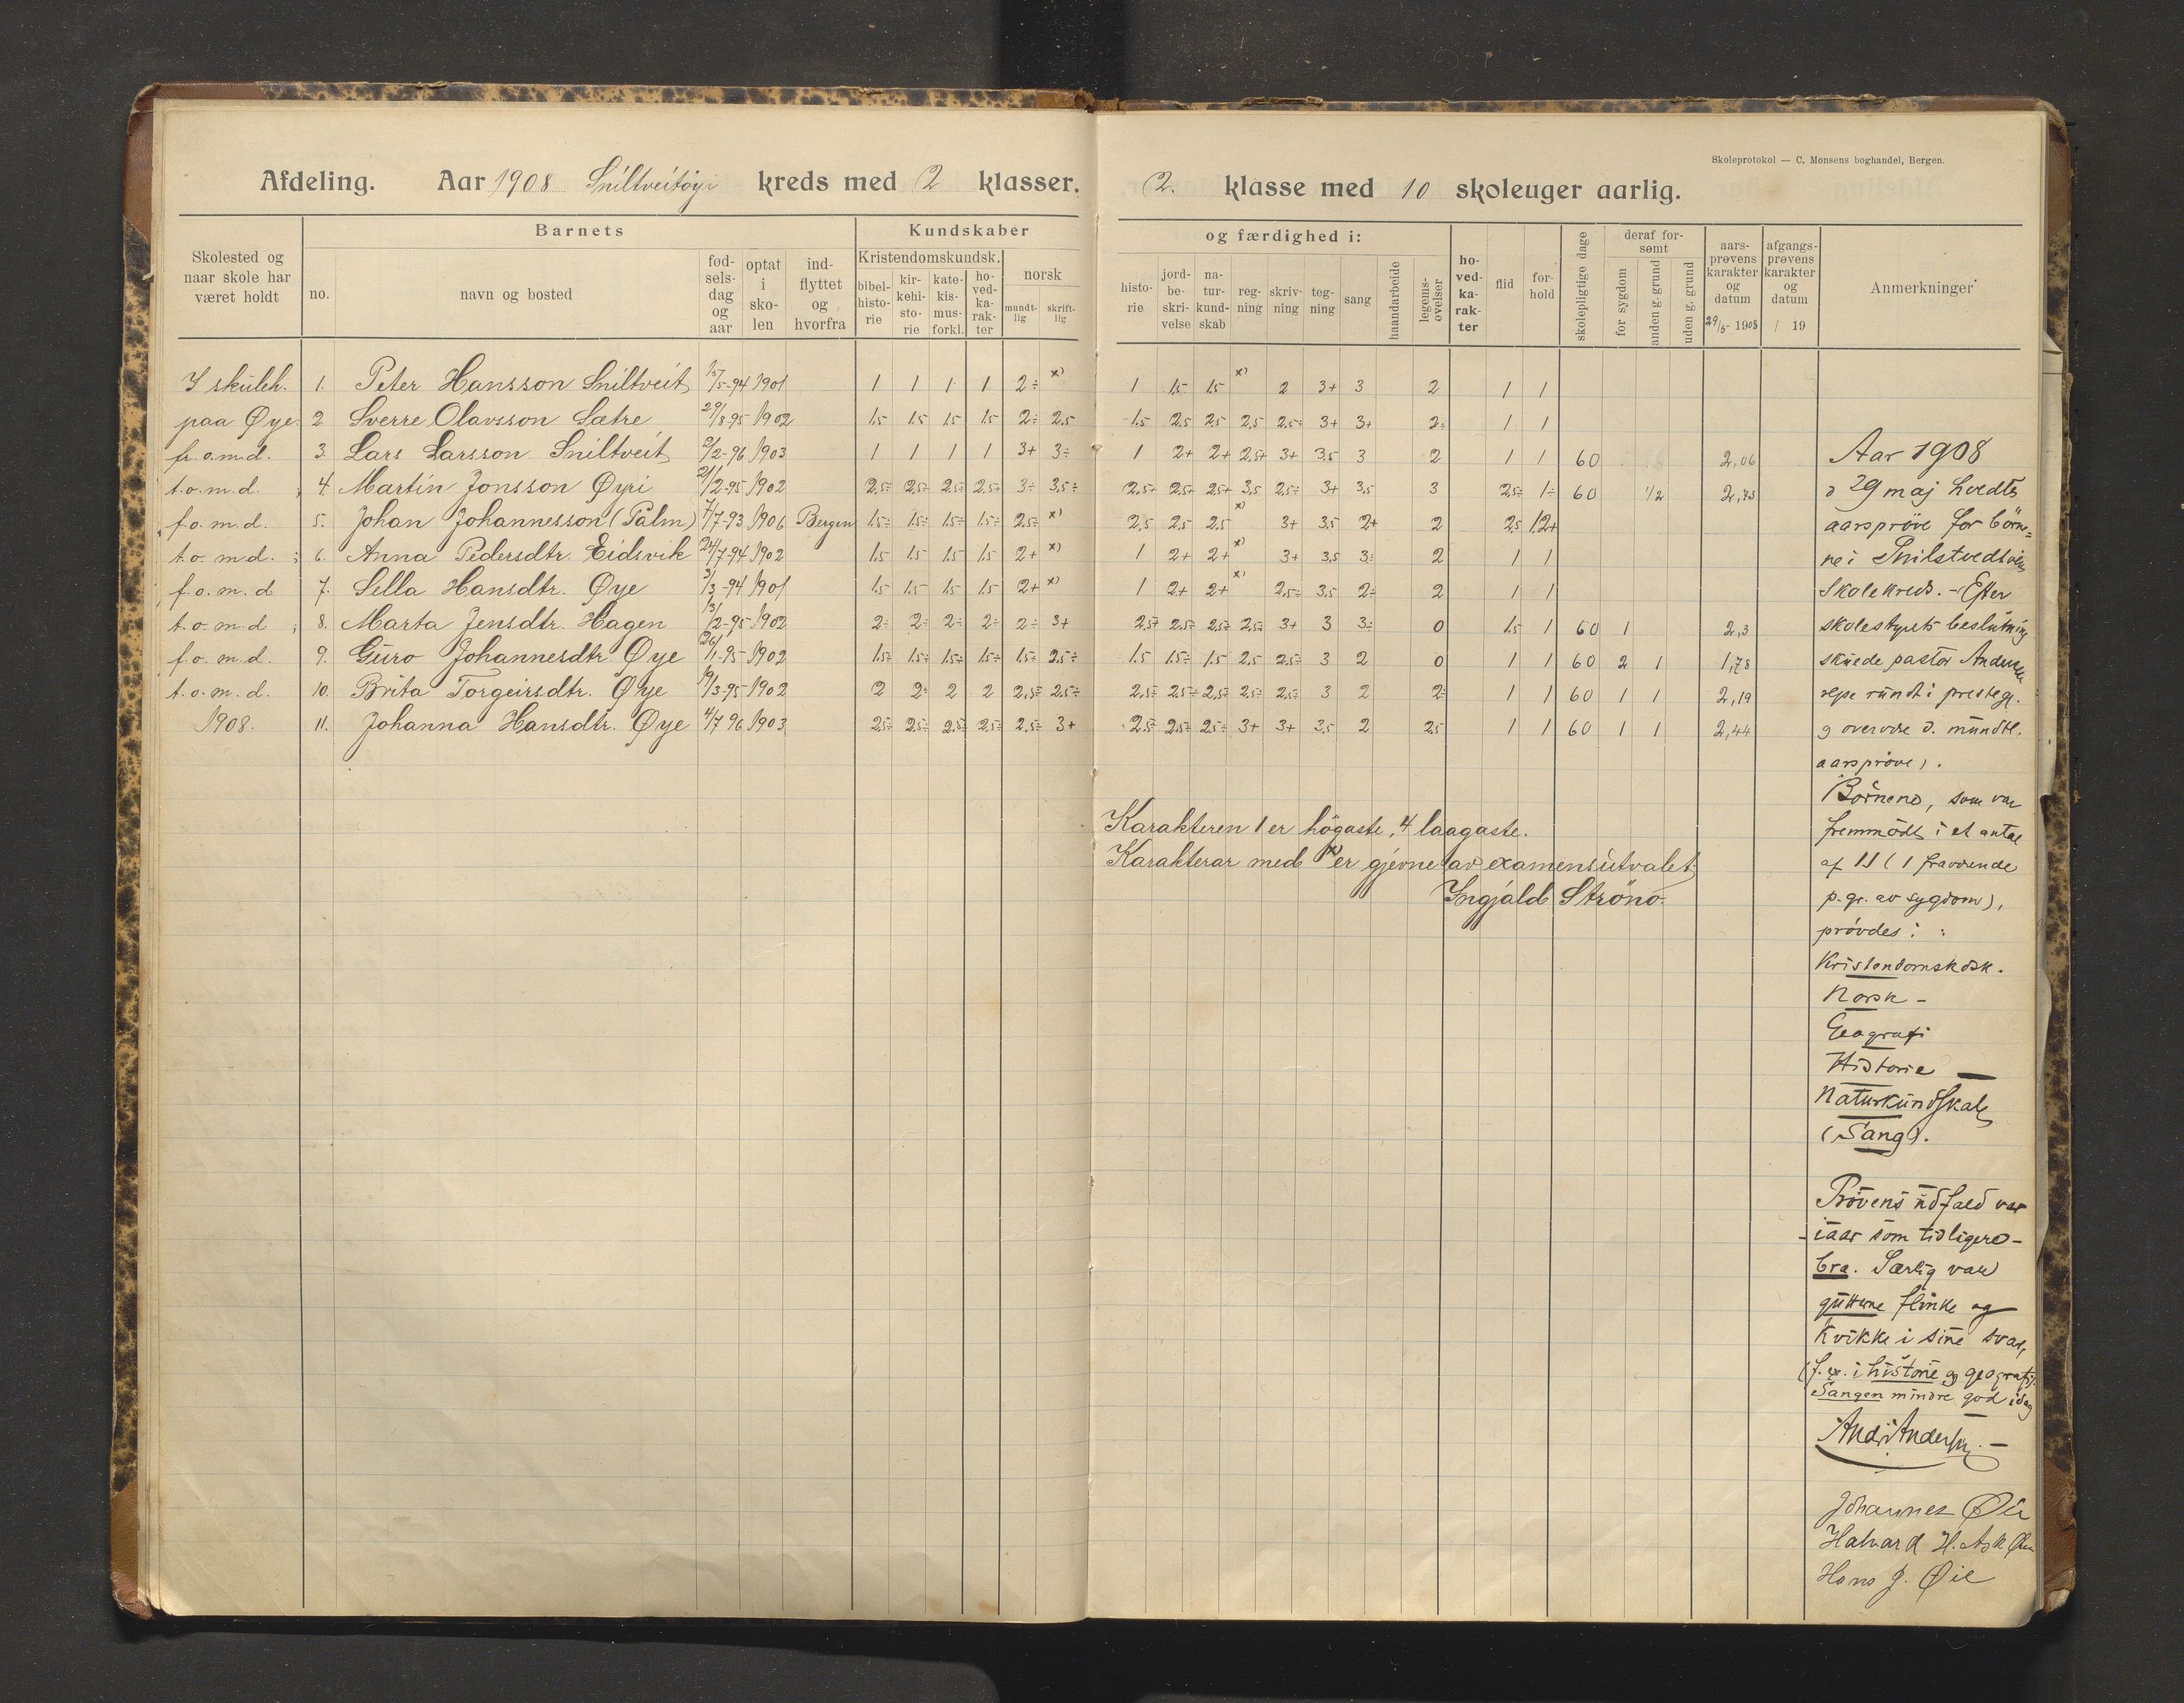 Skoleprotokol — C. Monsens boghandel, Bergen.
Afdeling. Aar 1908 Sniltveitöyi kreds med 2 klasser.
2. klasse med 10 skoleuger aarlig.
Skolested og naar skole har været holdt
Barnets
no.
navn og bosted
fød-sels-dag og aar
optat i sko-len
ind-flyttet og hvorfra
Kundskaber
Kristendomskundsk.
bibel-histo-rie
kir-kehi-sto-rie
kate-kis-mus-forkl.
ho-ved-ka-rak-ter
norsk
mundt-lig
skrift-lig
og færdighed i:
histo-rie
jord-be-skri-velse
na-tur-kund-skab
reg-ning
skriv-ning
teg-ning
sang
haandarbeide
legems-øvelser
ho-ved-ka-rak-ter
flid
for-hold
skolepligtige dage
deraf for-sømt
for sygdom
anden g. grund
uden g. grund
aars-prøvens karakter og datum
29/5 1908
afgangs-prøvens karakter og datum
/ 19
Anmerkninger
I skuleh. 1. Peter Hansson Sniltveit 15/5-94 1901 1 1 1 1 2÷ x) 1 1.5 1.5 x) 2 3+ 3 2 1 1
paa Øye 2 Sverre Olavsson Sætre 29/8-95 1902 1.5 1.5 1.5 1.5 2÷ 2.5 1.5 2.5 2.5 2.5 2.5÷ 3+ 3+ 2÷ 1 1
fr.o.m.d. 3. Lars Larsson Sniltveit 2/2-96 1903 1 1 1 1 3+ 3÷ 1 2+ 2+ 2.5+ 3+ 3.5 3 2 1 1 60 2,06
t.o.m.d. 4 Martin Jonsson Øyri 21/2-95 1902 2.5÷ 2.5÷ 2.5÷ 2.5÷ 3÷ 3.5÷ 2.5+ 2.5+ 2.5+ 3.5 2.5÷ 3+ 3.5 3 2.5÷ 1÷ 60 1/2 2,73
f.o.m.d. 5. Johan Johannesson (Palm) 7/7-93 1906 Bergen 1.5÷ 1.5÷ 1.5÷ 1.5÷ 2.5÷ x) 2.5 2.5 2.5 x) 3+ 3.5 2+ 2 2.5 1.2+
t.o.m.d. 6. Anna Pedersdtr. Eidsvik 24/7-94 1902 1.5 1.5 1.5 1.5 2+ x) 1 2+ 2+ x) 3+ 3.5 3÷ 2 1 1
f.o.m.d 7. Sella Hansdtr. Øye 3/3-94 1901 1.5 1.5 1.5 1.5 2+ x) 1 2+ 2+ x) 2.5÷ 3.5 2÷ 2 1 1
t.o.m.d 8. Marta Jensdtr. Hagen 1902 2÷ 2÷ 2÷ 2÷ 2÷ 3+ 2.5+ 2.5÷ 2.5÷ 2.5÷ 3+ 3 3÷ 0 1.5 1 60 1 2,3
f.o.m.d. 9. Guro Johannesdtr Øye 26/11-95 1902 1.5÷ 1.5÷ 1.5÷ 1.5÷ 1.5÷ 2.5÷ 1.5 1.5÷ 1.5 2.5 2.5÷ 3 2 0 1 1 60 2 1 1,78
t.o.m.d. 10. Brita Torgeirsdtr. Øye 19/3-95 1902 2 2÷ 2 2 2.5÷ 2.5÷ 2.5÷ 2.5÷ 2.5÷ 2.5÷ 2.5÷ 3 2 2÷ 1 1 60 1 1 2,19
1908. 11. Johanna Hansdtr. Øye 4/7 96 1903 2.5÷ 2.5÷ 2.5÷ 2.5÷ 2.5÷ 3+ 2.5÷ 2.5÷ 2.5÷ 3+ 3+ 3.5 2 2.5 1 1 60 1 1 2,44
Karakteren 1 er högaste, 4 laagaste.
Karakterar med x) er gjevne av examensutvalet
Ingjald Strönо.
Aar 1908
d 29 maj hvedts
aarspröve for börne=
ne i
Skolekreds. - Efter
skolestyrets beslutning
skuede pastor Andersen
rejse rundt i presteg.
g overvære d. mundtl.
aarspröve).
Börnene, som var
fremmödt i et antal
af 11 (1 fraværende
p. gr. av sygdom),
prövdes i:
Kristendomskdsk.
Norsk -
Geografi
Historie
Naturkundskab
(Sang).
Prövens udfald var
- iaar som tidligere -
bra. Særlig vare
gutterne flinke og
kvikke i sine svar,
(f. ex. i historie og geografi).
Sangen mindre god idag
Andr Andersen. -
Johannes Øie
Halvard H. Ask Øie
Hans J. Øie